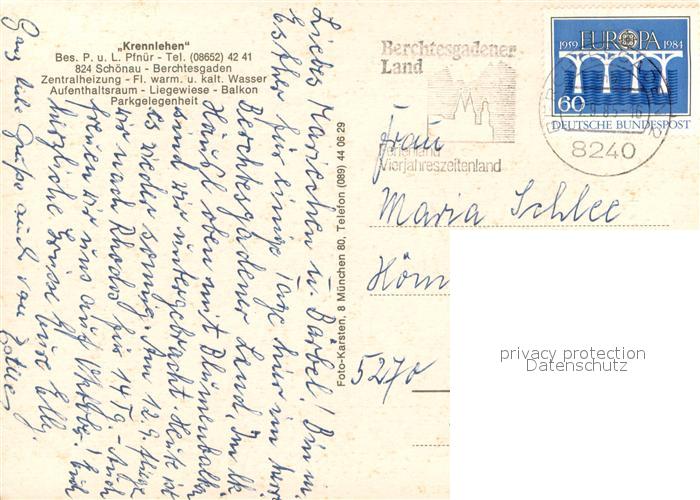 „Krennlehen"
Bes. P. u. L. Pfnür - Tel. (08652) 42 41
824 Schönau - Berchtesgaden
Zentralheizung - Fl. warm. u. kalt. Wasser
Aufenthaltsraum - Liegewiese - Balkon
Parkgelegenheit
Liebes Mariechen u. Bärbel! Bin m.
Esther für einige Tage hier im
Berchtesgadener Land. Im
Häusl oben mit Blumenbalkon
sind wir untergebracht. Heute ist
es wieder sonnig. Am 12.9. fliege
wir nach Rhodos für 14 Tg. - Auch
freuen wir uns auf
herzliche Grüsse Eure Elly.
Ganz liebe Grüße auch von
Foto-Karsten, 8 München 80, Telefon (089) 44 05 29
Berchtesgadener
Land
Ferienland
Vierjahreszeitenland
1959 EUROPA 1984
60
DEUTSCHE BUNDESPOST
8240
Frau
Maria Schlee
5270
privacy protection
Datenschutz